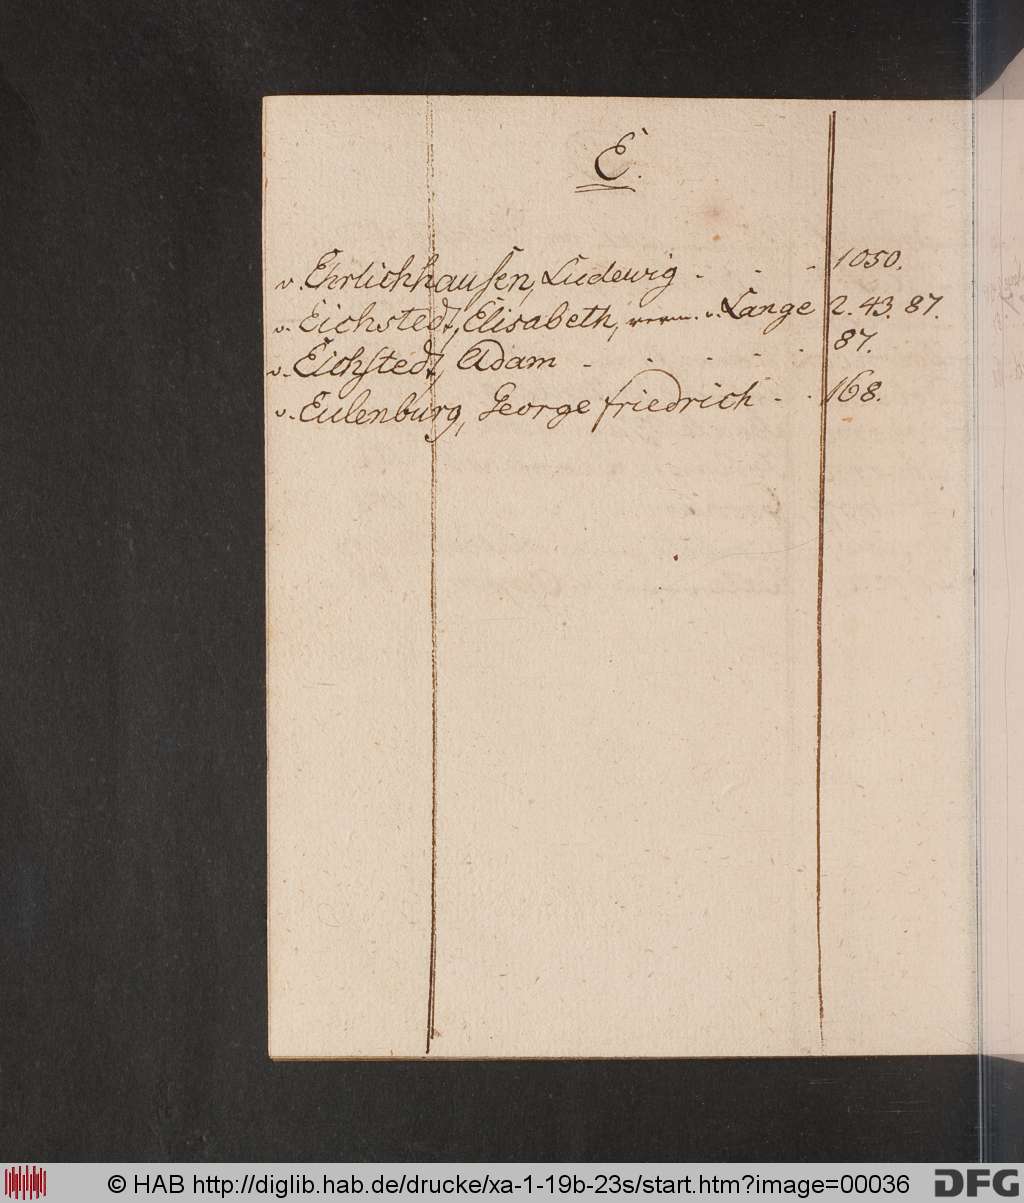 E.
v. Ehrlichhausen, Ludewig - - - 1050.
v. Eichstedt, Elisabeth, verm. v. Lange 2. 43. 87.
v. Eichstedt, Adam - - - - - 87.
v. Eulenburg, George friedrich - - 168.
© HAB http://diglib.hab.de/drucke/xa-1-19b-23s/start.htm?image=00036
DFG